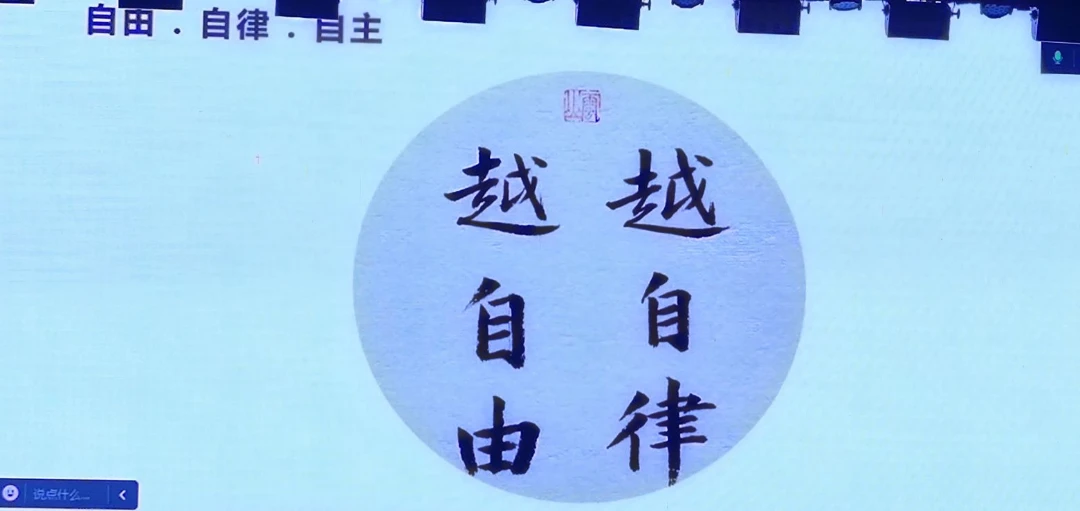 自由．自律．自主
越自律
越自由
说点什么...